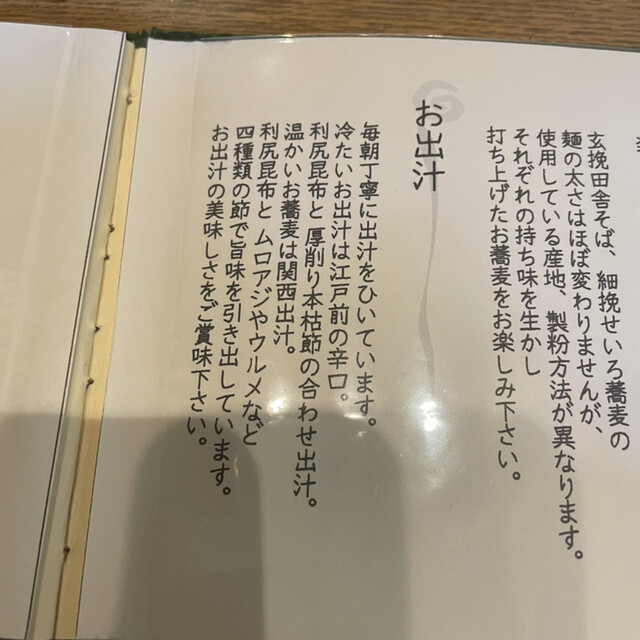 玄挽田舎そば、細挽せいろ蕎麦の
麺の太さはほぼ変わりませんが、
使用している産地、製粉方法が異なります。
それぞれの持ち味を生かし
打ち上げたお蕎麦をお楽しみ下さい。
お出汁
毎朝丁寧に出汁をひいています。
冷たいお出汁は江戸前の辛口。
利尻昆布と厚削り本枯節の合わせ出汁。
温かいお蕎麦は関西出汁。
利尻昆布と ムロアジやウルメなど
四種類の節で旨味を引き出しています。
お出汁の美味しさをご賞味下さい。